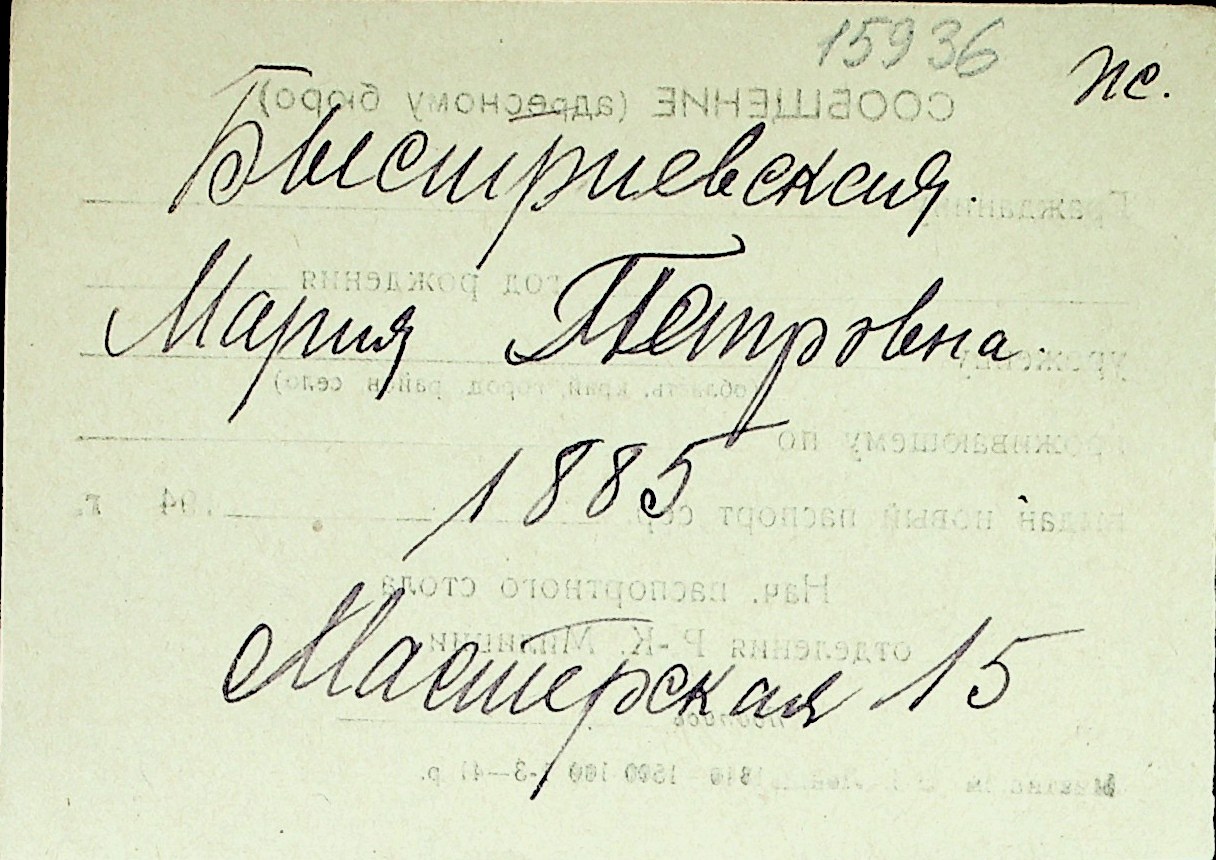 15936
пс.
Быстриевская.
Мария Петровна.
1885
Мастерская 15
СООБЩЕНИЕ (адресному бюро)
год рождения
(область, край, город, район, село)
проживающему по
выдан новый паспорт сер. 194 г.
Нач. паспортного стола
отделения Р.-К. Милиции